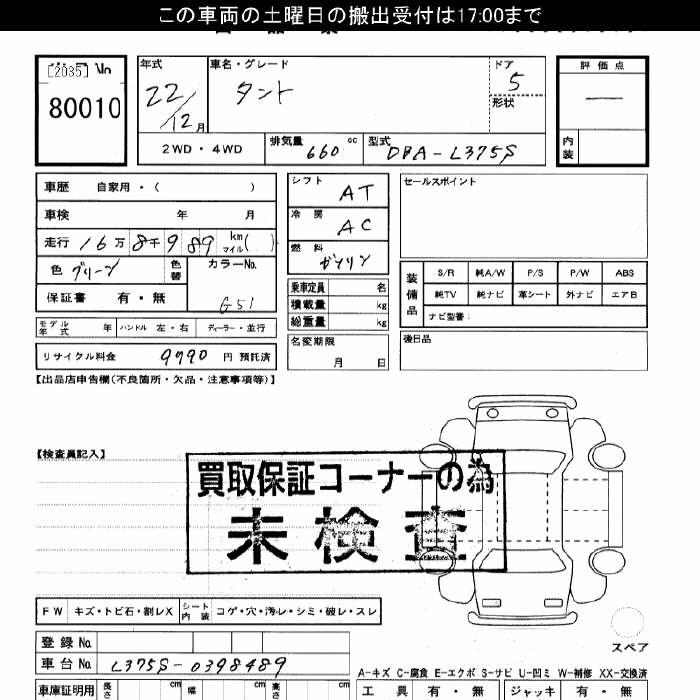 この車両の土曜日の搬出受付は17:00まで
[2035] No
80010
年式
22/12月
車名・グレード
タント
ドア
5
形状
評価点
—
内装
2WD・4WD
排気量 660 cc
型式 DBA-L375S
車歴 自家用・( )
車検 年 月
走行 16万8千989 km マイル( )
色 グリーン
色替
カラーNo.
G51
保証書 有・無
モデル年式 年
ハンドル 左・右
ディーラー・並行
リサイクル料金 9790 円 預託済
シフト AT
冷房 AC
燃料 ガソリン
乗車定員 名
積載量 kg
総重量 kg
名変期限
月 日
セールスポイント
装備品
S/R 純A/W P/S P/W ABS
純TV 純ナビ 革シート 外ナビ エアB
ナビ型番:
後日品
【出品店申告欄(不良箇所・欠品・注意事項等)】
【検査員記入】
買取保証コーナーの為
未検査
FW キズ・トビ石・割レX
シート内装 コゲ・穴・汚レ・シミ・破レ・スレ
登録No.
車台No. L375S-0398489
スペア
A-キズ C-腐食 E-エクボ S-サビ U-凹ミ W-補修 XX-交換済
車庫証明用 長さ cm 幅 cm 高さ cm
工具 有・無 ジャッキ 有・無